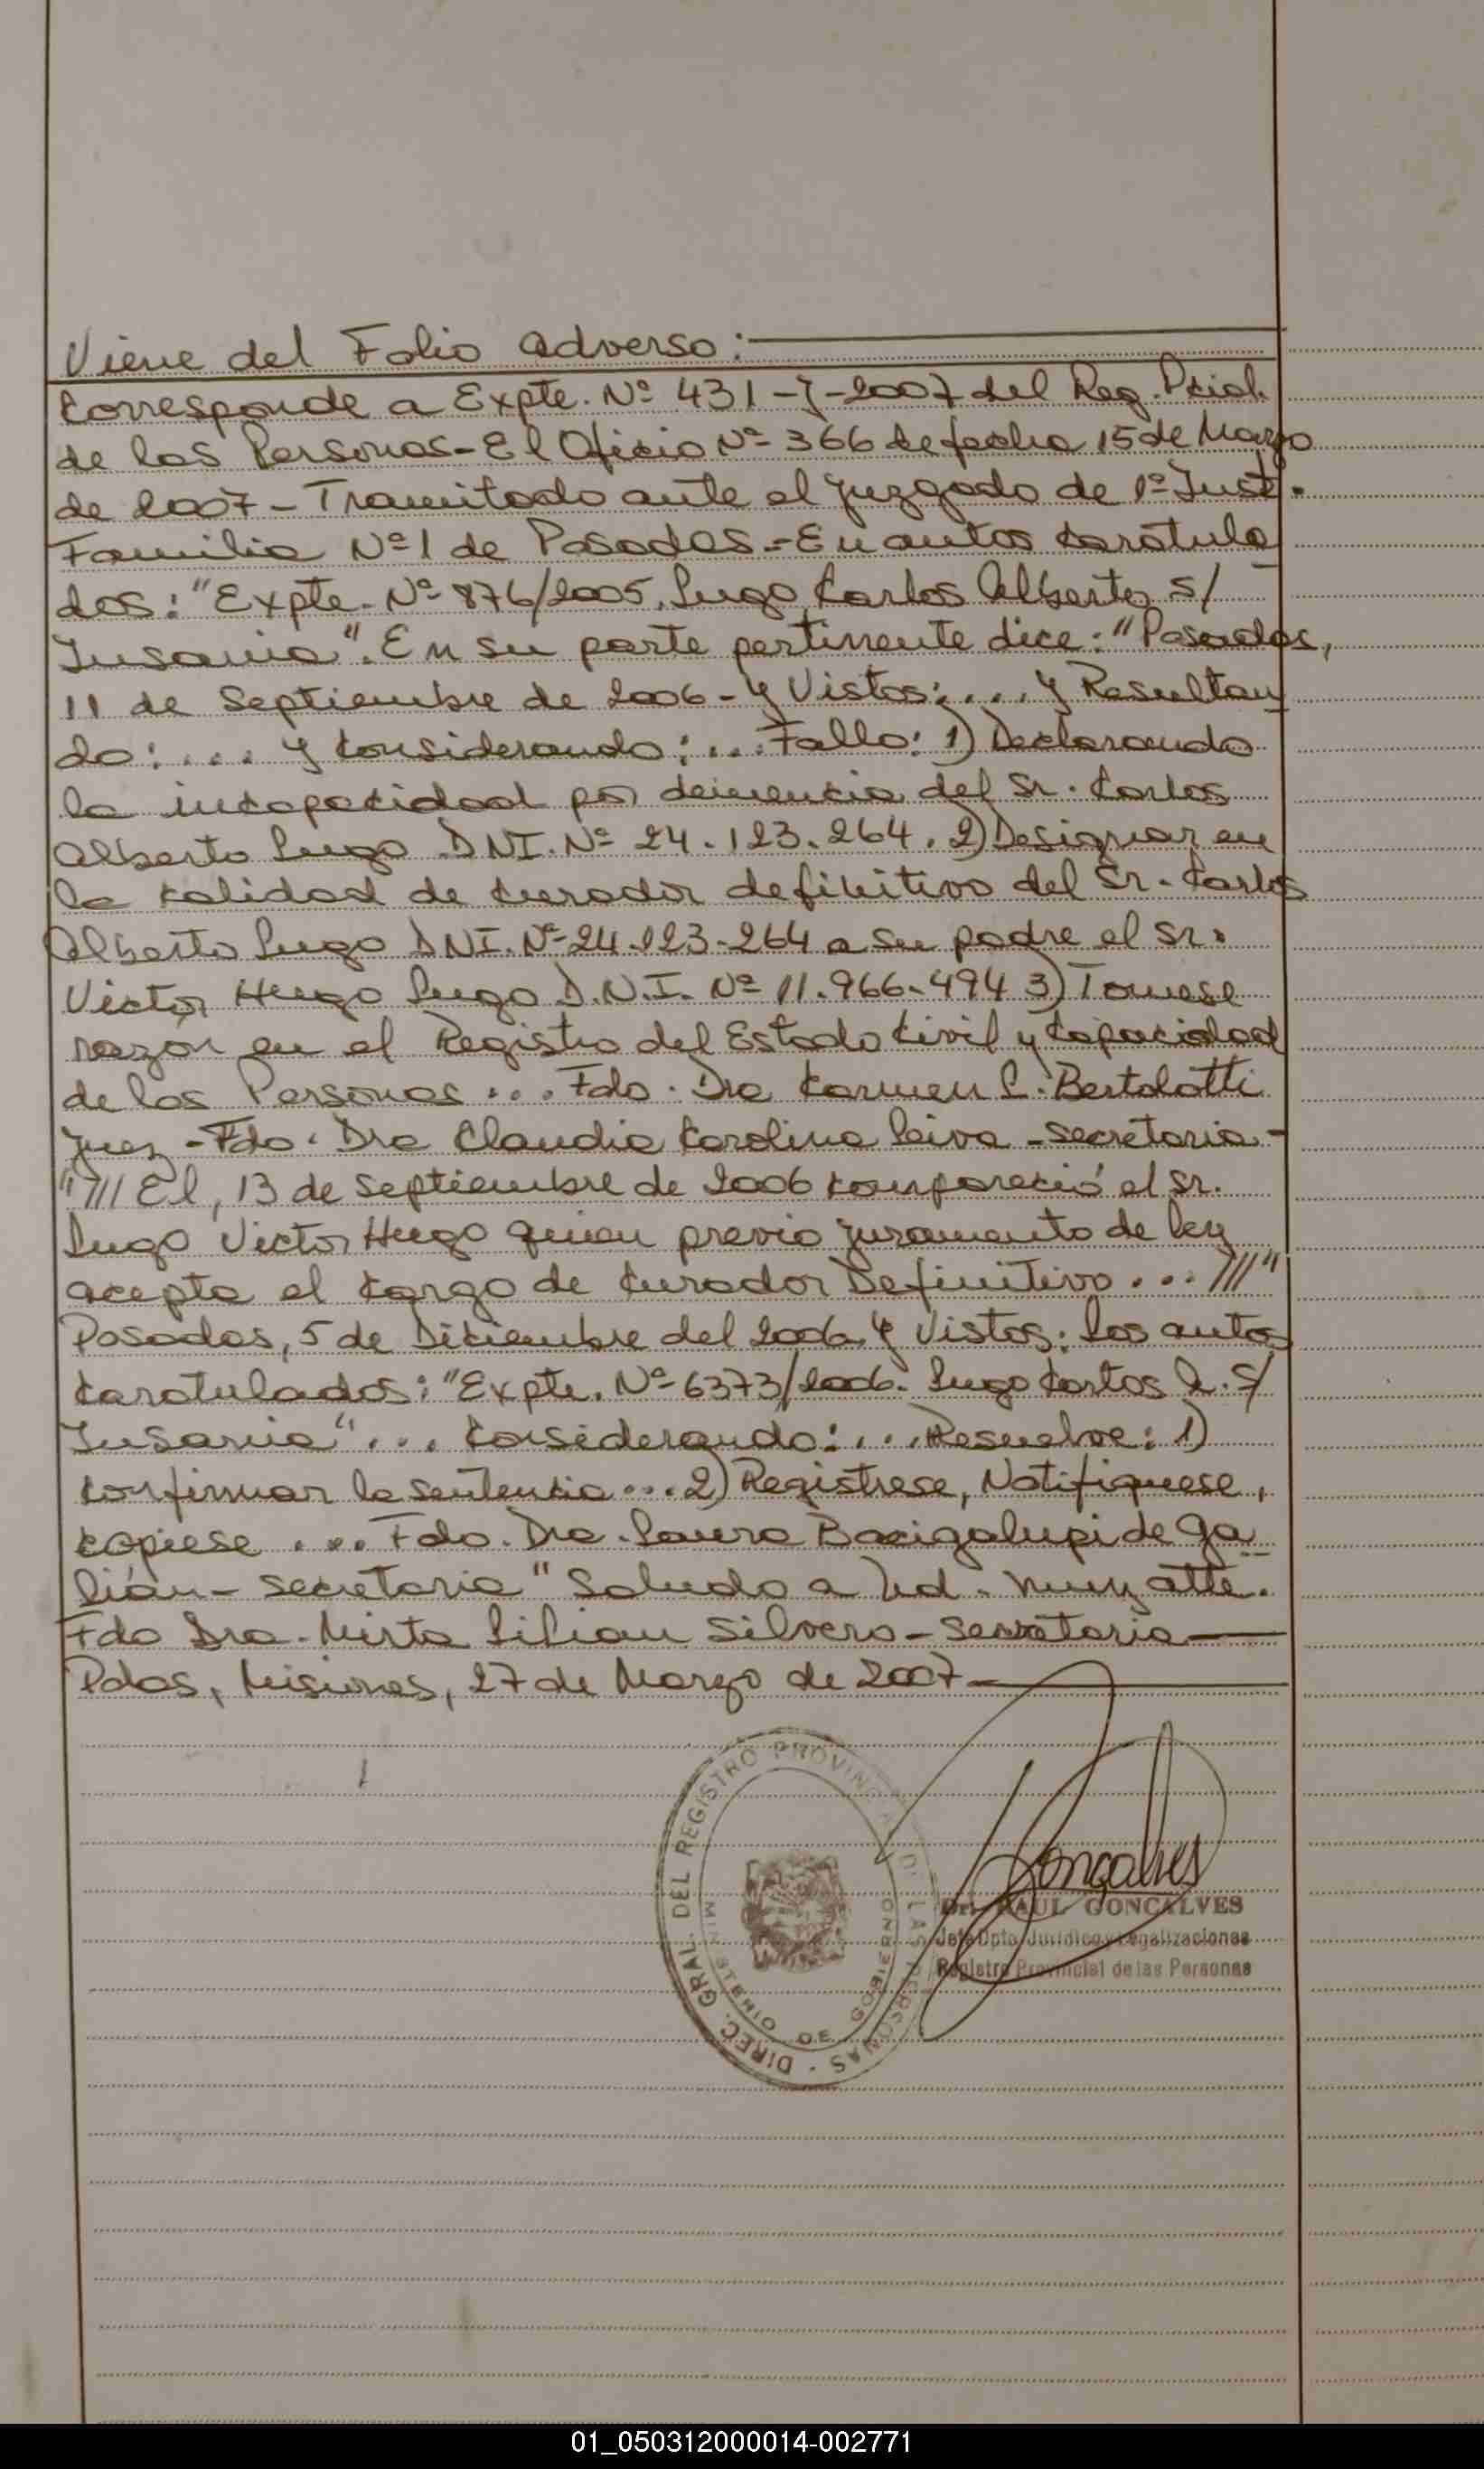 Viene del Folio adverso:
Corresponde a Expte. Nº 431-J-2007 del Reg. Pcial.
de las Personas- El Oficio Nº 366 de fecha 15 de Marzo
de 2007- Tramitado ante el juzgado de 1º Inst.
Familia Nº 1 de Posadas- En autos caratula
dos: "Expte. Nº 876/2005, Lugo Carlos Alberto s/
Insania". En su parte pertinente dice: "Posadas,
11 de Septiembre de 2006- y Vistos:.... y Resultan
do:.... y Considerando:... Fallo: 1) Declarando
la incapacidad por demencia del Sr. Carlos
Alberto Lugo DNI. Nº 24.123.264. 2) Designar en
la calidad de Curador definitivo del Sr. Carlos
Alberto Lugo DNI. Nº 24.123-264 a su padre el Sr.
Victor Hugo Lugo D.N.I. Nº 11.966.494 3) Tomese
razon en el Registro del Estado Civil y Capacidad
de las Personas... Fdo. Dra Carmen C. Bertolotti
juez - Fdo. Dra Claudia Carolina Leiva - Secretaria-
"/// El, 13 de Septiembre de 2006 compareció el Sr.
Lugo Victor Hugo quien previo juramento de ley
acepta el cargo de Curador Definitivo... ///"
Posadas, 5 de Diciembre del 2006. y Vistos: Los autos
Caratulados: "Expte. Nº 6373/2006. Lugo Carlos A. S/
Insania"... Considerando:... Resuelve: 1)
Confirmar la sentencia... 2) Registrese, Notifiquese,
copiese... Fdo. Dra. Laura Bacigalupi de Ga
lián- Secretaria" Saludo a Ud. muy atte.
Fdo Dra. Mirta Lilian Silvero- Secretaria
Pdas, Misiones, 27 de Marzo de 2007-
DIREC. GRAL. DEL REGISTRO PROVINCIAL DE LAS PERSONAS
MINISTERIO DE GOBIERNO
Gonçalves
Dr. RAUL GONCALVES
Jefe Dpto. Jurídico y Legalizaciones
Registro Provincial de las Personas
01_050312000014-002771